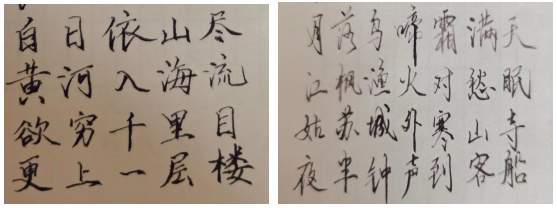 白日依山尽
黄河入海流
欲穷千里目
更上一层楼
月落乌啼霜满天
江枫渔火对愁眠
姑苏城外寒山寺
夜半钟声到客船